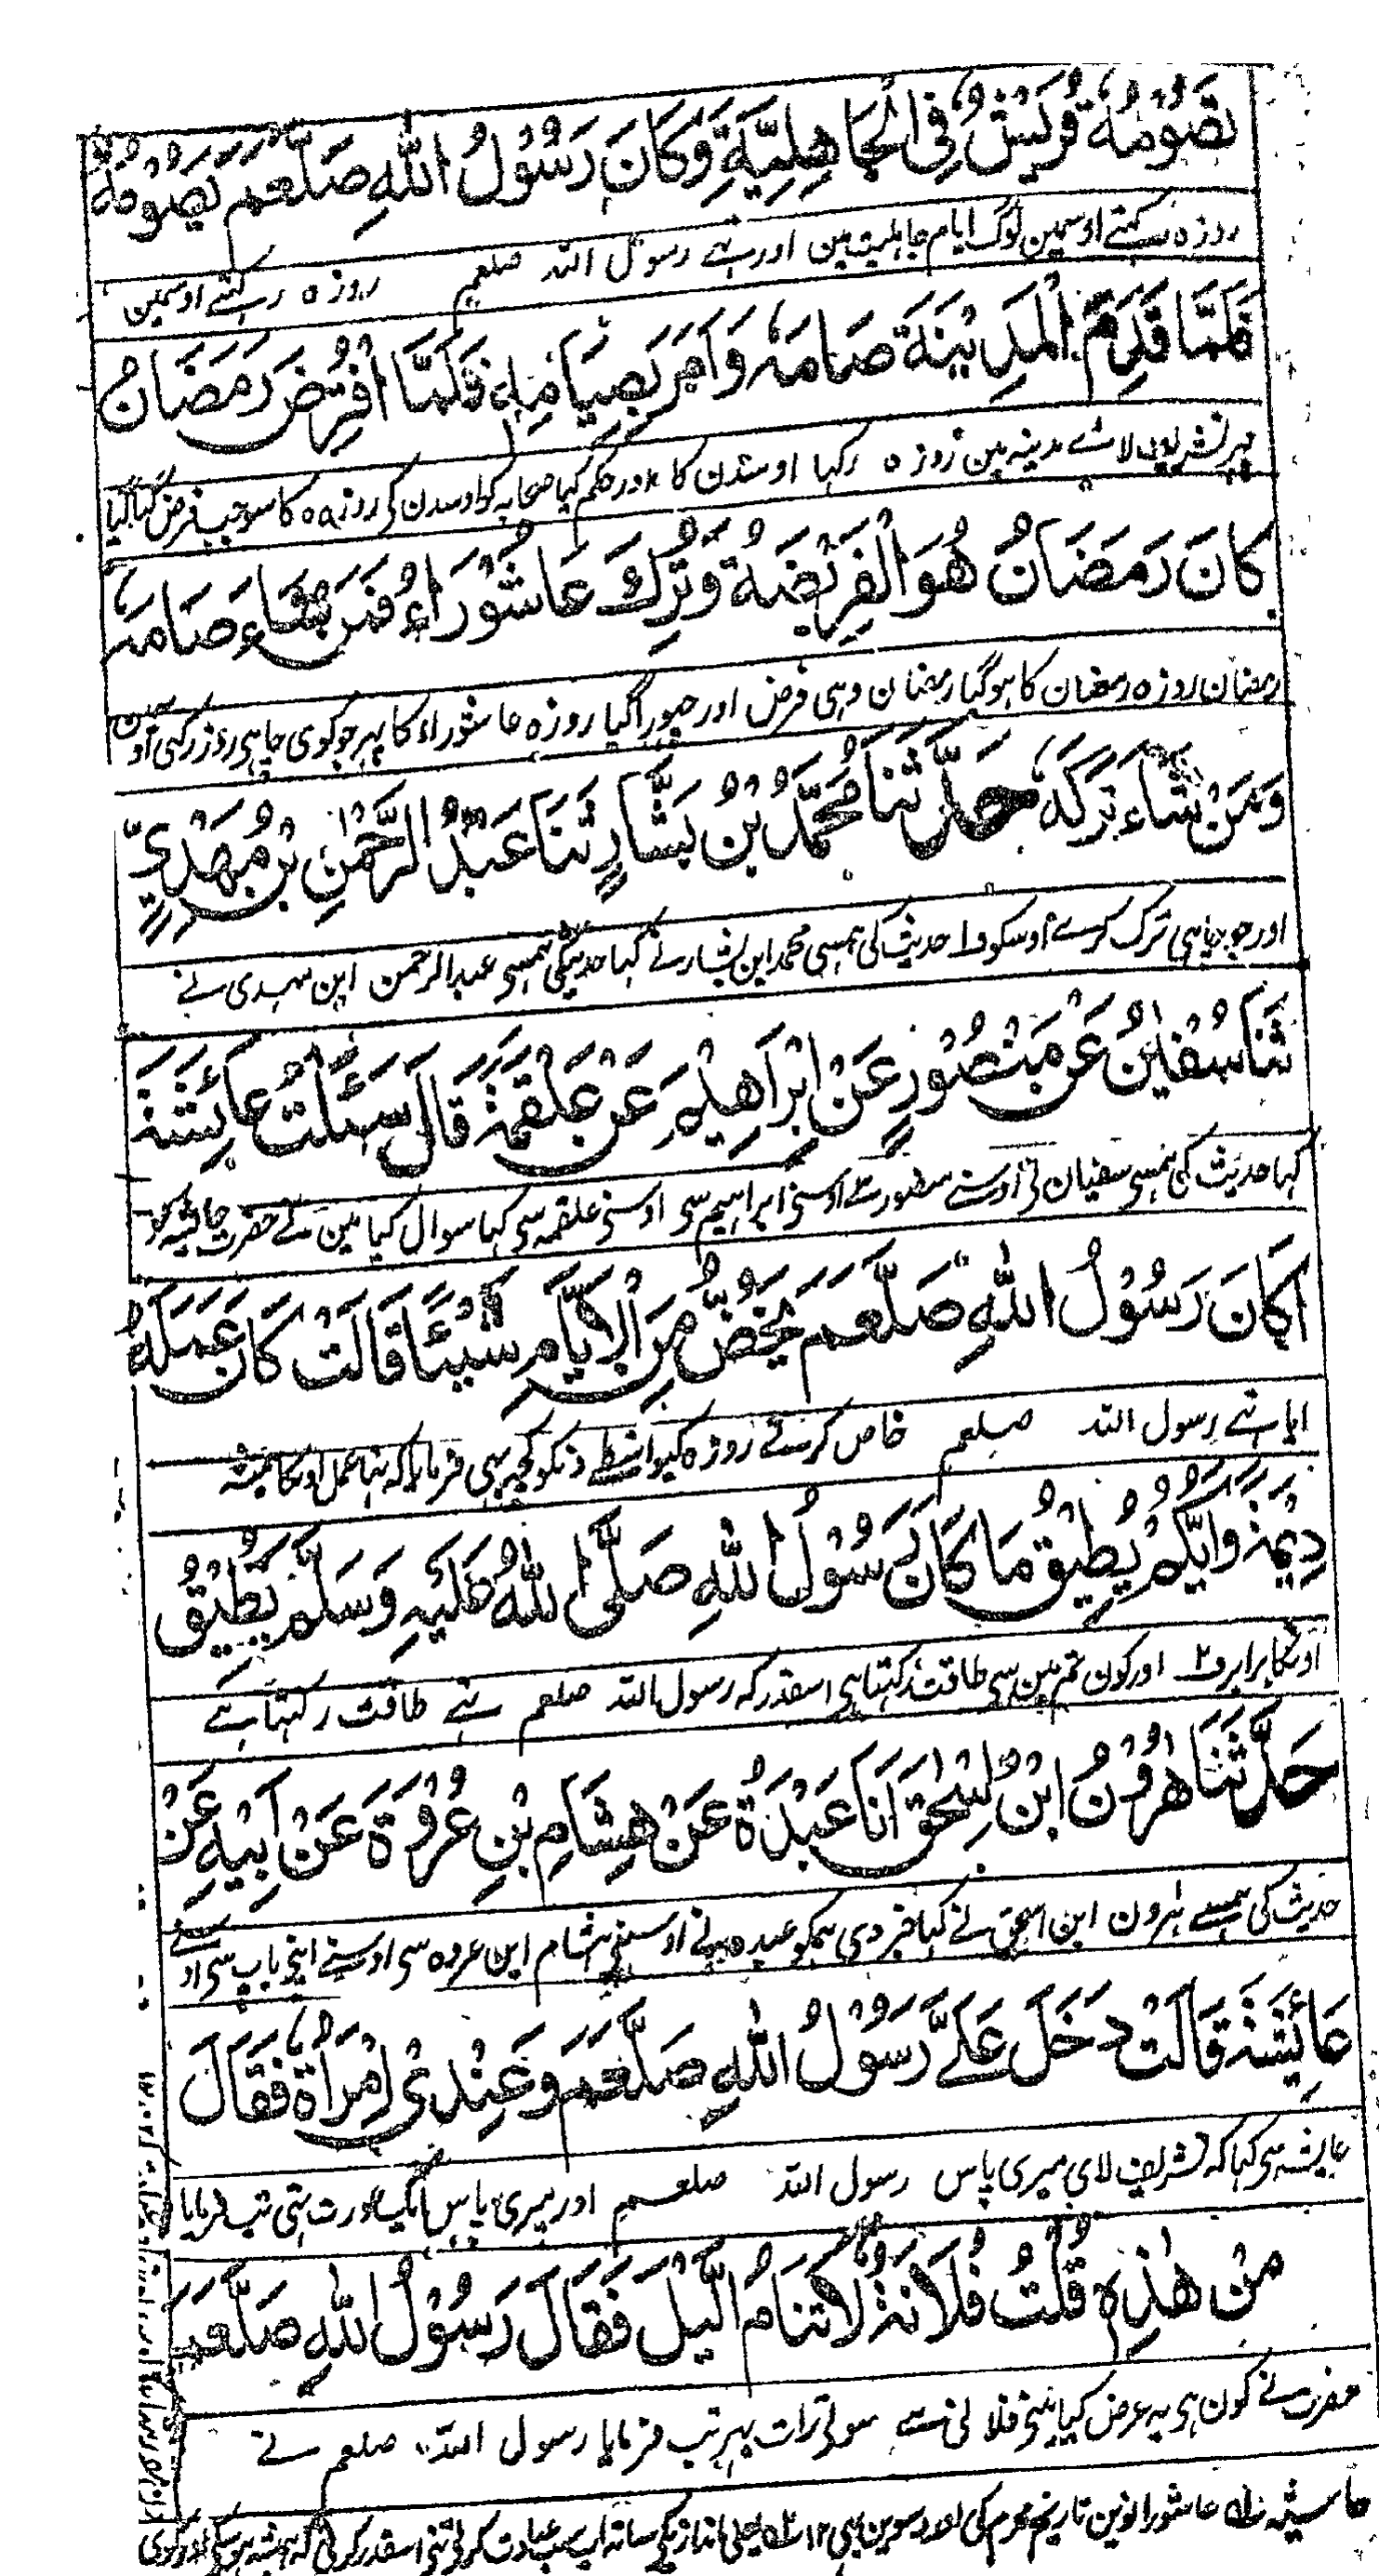 تَصُوْمُهٗ قُرَيْشٌ فِي الْجَاهِلِيَّةِ وَكَانَ رَسُوْلُ اللهِ صَلَّعَم يَصُوْمُهٗ
روزه رہکتے اوسمین لوگ ایام جاہلیت مین اور تہے رسول اللہ صلعم روزه رہکتے اوسمین
فَلَمَّا قَدِمَ الْمَدِيْنَةَ صَامَهٗ وَاَمَرَ بِصِيَامِهٖ فَلَمَّا افْتُرِضَ رَمَضَانُ
پہر تشریف لائے مدینہ مین روزه رکہا اوسدن کا اور حکم کیا صحابہ کو اوسدن کی روزه کا سو جب فرض کیا گیا
كَانَ رَمَضَانُ هُوَ الْفَرِيْضَةُ وَتُرِكَ عَاشُوْرَاءُ فَمَنْ شَاءَ صَامَهٗ
رمضان روزه رمضان کا ہوگیا رمضان وہی فرض اور چہوڑا گیا روزه عاشوراء کا پہر جو کوی چاہی روزه رکہی
وَمَنْ شَاءَ تَرَكَهٗ حَدَّثَنَا مُحَمَّدُ بْنُ بَشَّارٍ ثَنَا عَبْدُ الرَّحْمٰنِ بْنُ مَهْدِيٍّ
اور جو چاہی ترک کرے اوسکو ۱ حدیث کی ہمسی محمد ابن بشار نے کہا حدیثکی ہمسی عبد الرحمن ابن مہدی نے
ثَنَا سُفْيٰنُ عَنْ مَنْصُوْرٍ عَنْ اِبْرَاهِيْمَ عَنْ عَلْقَمَةَ قَالَ سَئَلْتُ عَائِشَةَ
کہا حدیث کی ہمسی سفیان نی اوسنے منصور سے اوسنی ابراہیم سی اوسنی علقمہ سی کہا سوال کیا مین نے حضرت عائشہ کو
اَكَانَ رَسُوْلُ اللهِ صَلَّعَم يَخُصُّ مِنَ الْاَيَّامِ شَيْئًا قَالَتْ كَانَ عَمَلُهٗ
ایا تہے رسول اللہ صلعم خاص کرتے روزه کیواسطے دنکو کچہ بہی فرمایا کہ تہا عمل اونکا ہمیشہ
دِيْمَةً وَاَيُّكُمْ يُطِيْقُ مَا كَانَ رَسُوْلُ اللهِ صَلَّى اللهُ عَلَيْهِ وَسَلَّمَ يُطِيْقُ
اونکا برابر ۲ اور کون تم مین سی طاقت رکہتا ہی اسقدر کہ رسول اللہ صلعم تہے طاقت رکہتا ہے
حَدَّثَنَا هٰرُوْنُ ابْنُ اِسْحٰقَ اَنَا عَبْدَةُ عَنْ هِشَامِ بْنِ عُرْوَةَ عَنْ اَبِيْهِ عَنْ
حدیث کی ہمسے ہارون ابن اسحق نے کہا خبر دی ہمکو عبده نے اوسنی ہشام ابن عروه سی اوسنے اپنی باپ سی اوسنے
عَائِشَةَ قَالَتْ دَخَلَ عَلَيَّ رَسُوْلُ اللهِ صَلَّعَم وَعِنْدِيْ اِمْرَأَةٌ فَقَالَ
عایشہ سی کہا کہ تشریف لای میری پاس رسول اللہ صلعم اور میری پاس ایک عورت تہی تب فرمایا
مَنْ هٰذِهٖ قُلْتُ فُلَانَةٌ لَا تَنَامُ الَّيْلَ فَقَالَ رَسُوْلُ اللهِ صَلَّعَم
حضرت نے کون ہی یہ عرض کیا مینی فلانی ہے سوتی رات بہر تب فرمایا رسول اللہ صلعم نے
حاشیہ عاشورا نوین تاریخ محرم کی اور دسوین بہی ۱۲